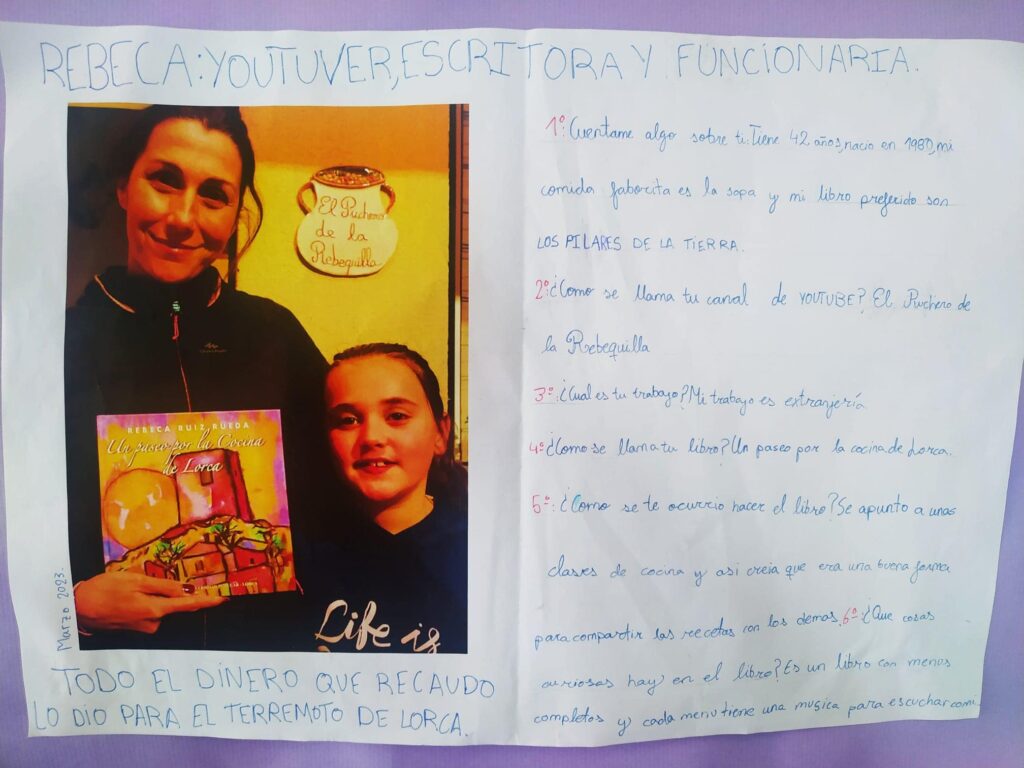 REBECA:YOUTUVER,ESCRITORA Y FUNCIONARIA.
El Puchero
de la
Rebequilla
REBECA RUIZ RUEDA
Un paseo por la Cocina
de Lorca
Life is
Marzo 2023.
TODO EL DINERO QUE RECAUDO
LO DIO PARA EL TERREMOTO DE LORCA.
1º:Cuentame algo sobre ti:Tiene 42 años,nacio en 1980,mi
comida faborita es la sopa y mi libro preferido son
LOS PILARES DE LA TIERRA.
2º:¿Como se llama tu canal de YOUTUBE? El Puchero de
la Rebequilla
3º:¿Cual es tu trabajo?Mi trabajo es extranjería
4º¿Como se llama tu libro?Un paseo por la cocina de Lorca.
5º:¿Como se te ocurrio hacer el libro?Se apunto a unas
clases de cocina y asi creia que era una buena forma
para compartir las recetas con los demas.6º:¿Que cosas
curiosas hay en el libro?Es un libro con menus
completos y cada menu tiene una musica para escuchar comi